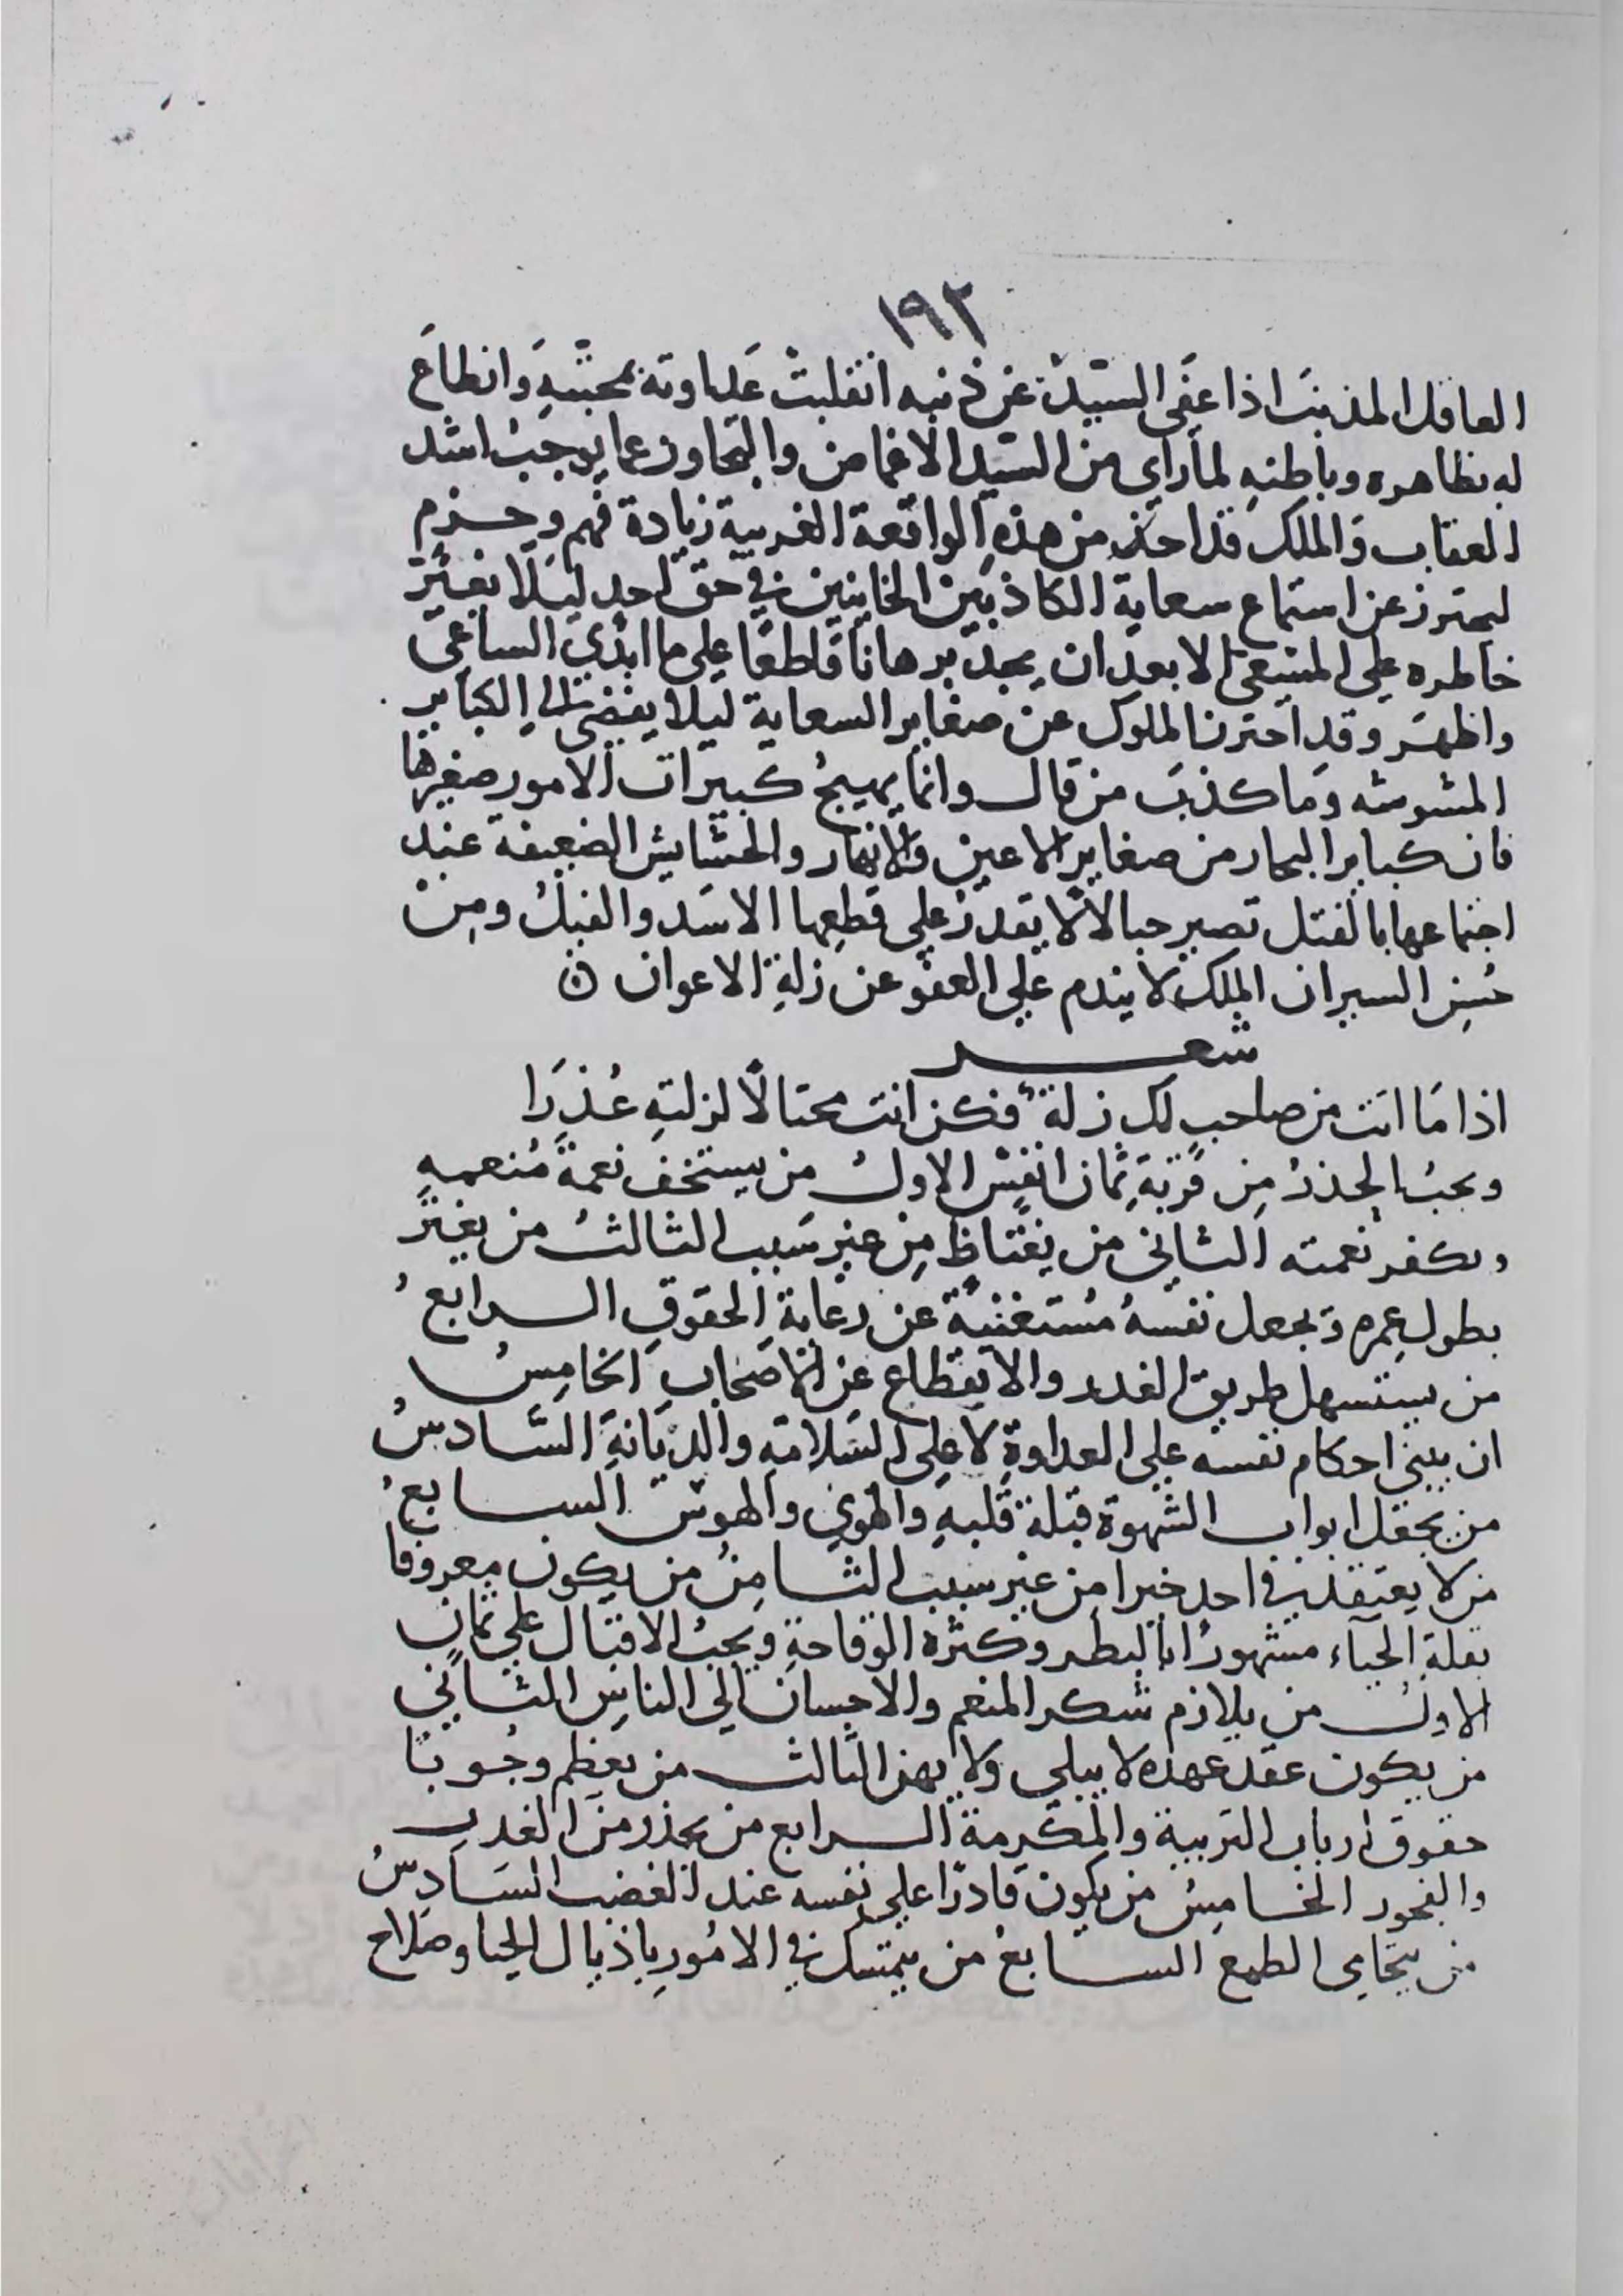 ١٩٢
العاقل المذنب اذا عفى السيد عن ذنبه انقلبت عداوته بمحبته وانطاع
له بظاهره وباطنه لما راي من السيد الاغماض والتجاوز عما يوجب اشد
العقاب والملك قد اخذ من هذه الواقعة الغريبة زيادة فهم وحزم
ليحترز عن استماع سعاية الكاذبين الخاينين في حق احد ليلا يغير
خاطره علي المسعى الا بعد ان يجد برهانا قاطعا علي ما ابدي الساعى
واظهر وقد احترز الملوك عن صغاير السعاية ليلا يفضى الي الكباير
المشوشه وما كذب من قال وانما يهيج كبيرات الامور صغيرها
فان كباير البحار من صغاير الاعين والانهار والحشايش الضعيفة عند
اجتماعها بالفتل تصير حبالا لا يقدر علي قطعها الاسد والفيل ومن
حسن السير ان الملك لا يندم علي العفو عن زلة الاعوان
شعر
اذا ما اتت من صاحب لك زلة فكن انت محتالا لزلته عذرا
ويجب الحذر من قربة ثمان انفس الاول من يستخف نعمة منعمه
ويكفر نعمته الثاني من يغتاظ من غير سبب الثالث من يغتر
بطول عمره ويجعل نفسه مستغنية عن رعاية الحقوق الرابع
من يستسهل طريق الغدر والانقطاع عن الاصحاب الخامس
ان يبنى احكام نفسه علي العداوة لا علي السلامة والديانة السادس
من يجعل ابواب الشهوة قبلة قلبه والهوي والهوس السابع
من لا يعتقد في احد خيرا من غير سبب الثامن من يكون معروفا
بقلة الحياء مشهورا بالبطر وكثرة الوقاحة ويجب الاقبال علي ثمان
الاول من يلازم شكر المنعم والاحسان الي الناس الثاني
من يكون عقد عهده لا يبلي ولا يهن الثالث من يعظم وجوبا
حقوق ارباب التربية والمكرمة الرابع من يحذر من الغدر
والفجور الخامس من يكون قادرا علي نفسه عند الغضب السادس
من يتحامي الطمع السابع من يتمسك في الامور باذيال الحيا وصلاح